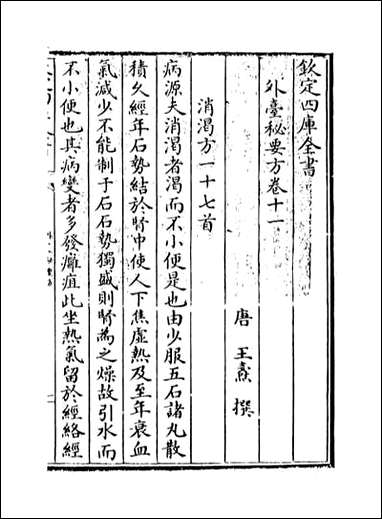 欽定四庫全書
外臺秘要方卷十一
唐 王燾 撰
消渴方一十七首
病源夫消渴者渴而不小便是也由少服五石諸丸散
積久經年石勢結於腎中使人下焦虛熱及至年衰血
氣減少不能制于石石勢獨盛則腎為之燥故引水而
不小便也其病變者多發癰疽此坐熱氣留於經絡經